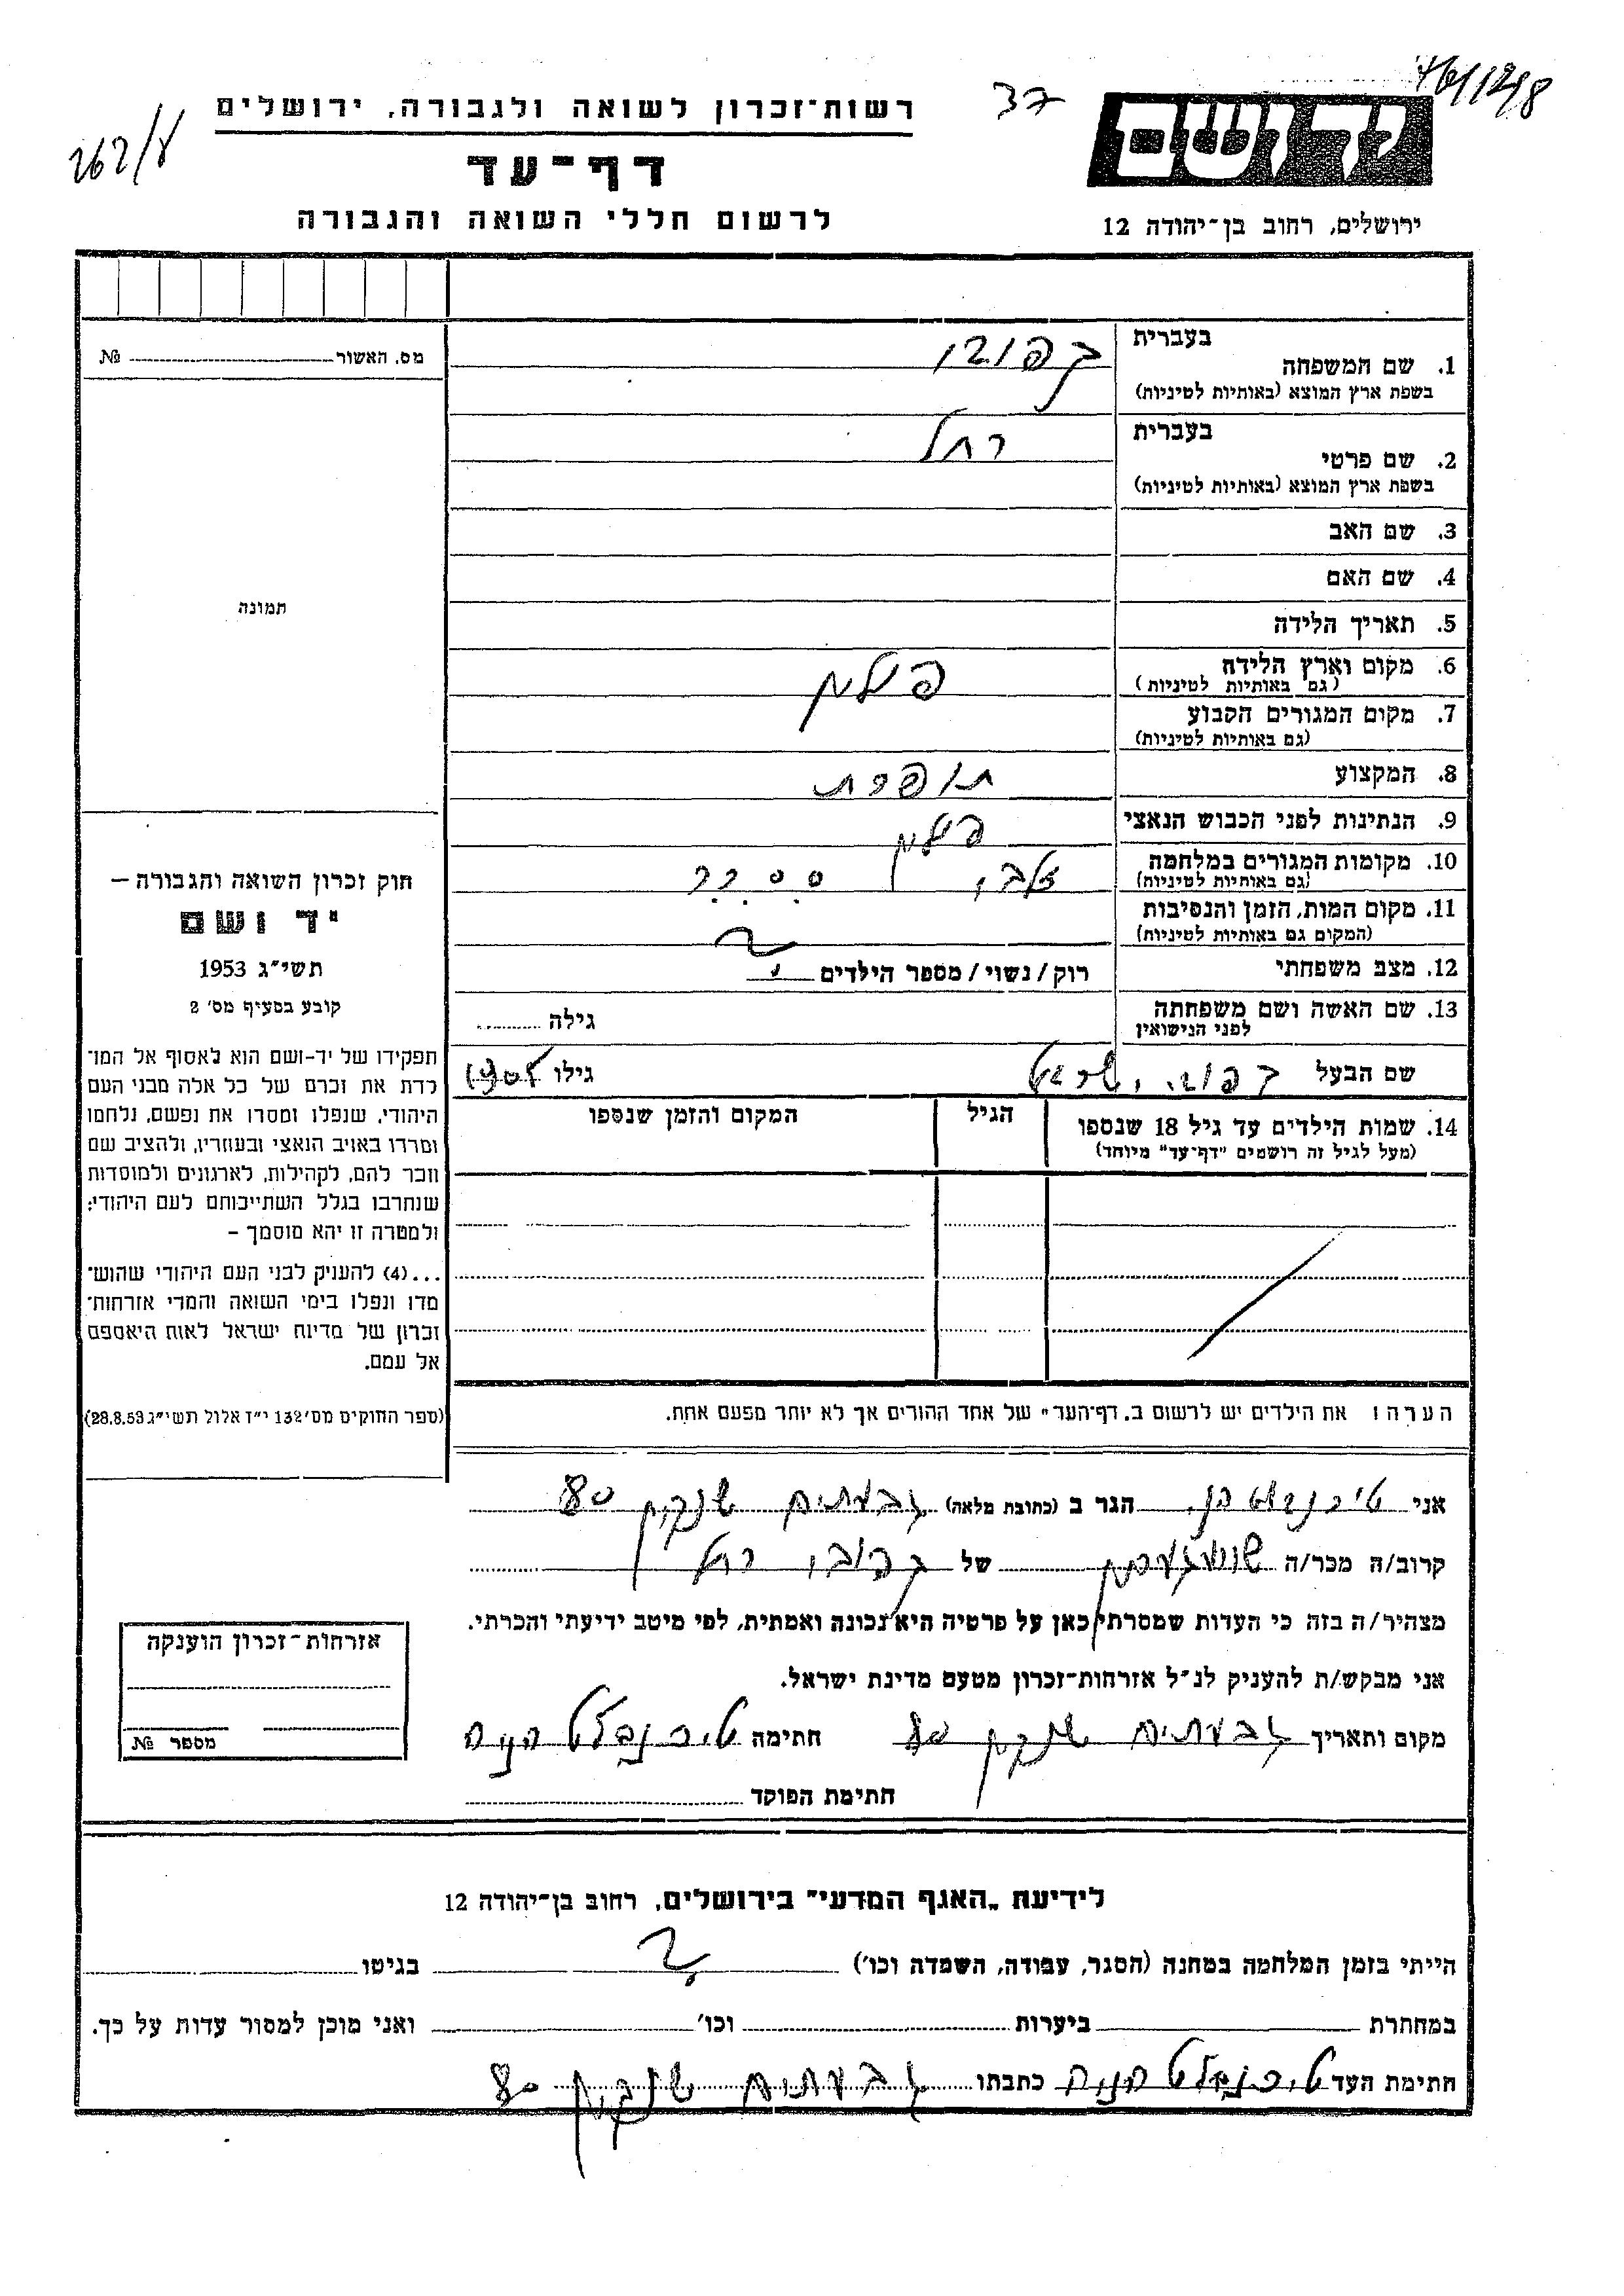 262/ע
37
רשות־זכרון לשואה ולגבורה, ירושלים
דף־עד
לרשום חללי השואה והגבורה
יד ושם
ירושלים, רחוב בן־יהודה 12
מס. האשור № 
תמונה
חוק זכרון השואה והגבורה –
יד ושם
תשי״ג 1953
קובע בסעיף מס׳ 2
תפקידו של יד-ושם הוא לאסוף אל המו־
לדת את זכרם של כל אלה מבני העם
היהודי, שנפלו ומסרו את נפשם, נלחמו
ומרדו באויב הנאצי ובעוזריו, ולהציב שם
וזכר להם, לקהילות, לארגונים ולמוסדות
שנחרבו בגלל השתייכותם לעם היהודי;
ולמטרה זו יהא מוסמך –
...(4) להעניק לבני העם היהודי שהוש־
מדו ונפלו בימי השואה והמרי אזרחות־
זכרון של מדינת ישראל לאות היאספם
אל עמם.
(ספר החוקים מס׳ 132 י״ז אלול תשי״ג 28.8.53)
בעברית
1. שם המשפחה
בשפת ארץ המוצא (באותיות לטיניות)
בעברית
2. שם פרטי רחל
בשפת ארץ המוצא (באותיות לטיניות)
3. שם האב
4. שם האם
5. תאריך הלידה
6. מקום וארץ הלידה פולין
(גם באותיות לטיניות)
7. מקום המגורים הקבוע
(גם באותיות לטיניות)
8. המקצוע תופרת
9. הנתינות לפני הכבוש הנאצי פולין
10. מקומות המגורים במלחמה
(גם באותיות לטיניות)
11. מקום המות, הזמן והנסיבות
(המקום גם באותיות לטיניות)
12. מצב משפחתי רוק/נשוי/מספר הילדים
13. שם האשה ושם משפחתה גילה
לפני הנישואין
שם הבעל ישראל גילו 1905
14. שמות הילדים עד גיל 18 שנספו הגיל המקום והזמן שנספו
(מעל לגיל זה רושמים ״דף־עד״ מיוחד)
הערה: את הילדים יש לרשום ב„דף־העד״ של אחד ההורים אך לא יותר מפעם אחת.
אני הגר ב (כתובת מלאה) גבעתיים שנקין 80
קרוב/ה מכר/ה של רחל
מצהיר/ה בזה כי העדות שמסרתי כאן על פרטיה היא נכונה ואמתית, לפי מיטב ידיעתי והכרתי.
אני מבקש/ת להעניק לנ״ל אזרחות-זכרון מטעם מדינת ישראל.
מקום ותאריך גבעתיים שנקין 80 חתימה
חתימת הפוקד
אזרחות־זכרון הוענקה
מספר №
לידיעת „האגף המדעי״ בירושלים, רחוב בן־יהודה 12
הייתי בזמן המלחמה במחנה (הסגר, עבודה, השמדה וכו׳) בגיטו
במחתרת ביערות וכו׳ ואני מוכן למסור עדות על כך.
חתימת העד כתבתו גבעתיים שנקין 80